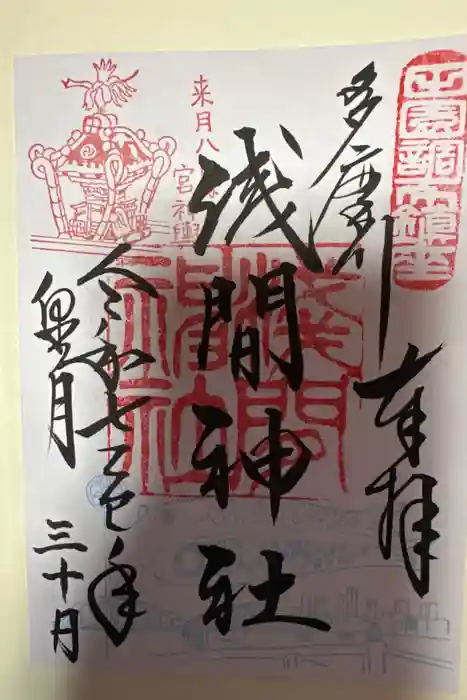 奉拝
多摩川
浅間神社
来月八
宮神輿
令和七乙巳年
三十日
浅間神社